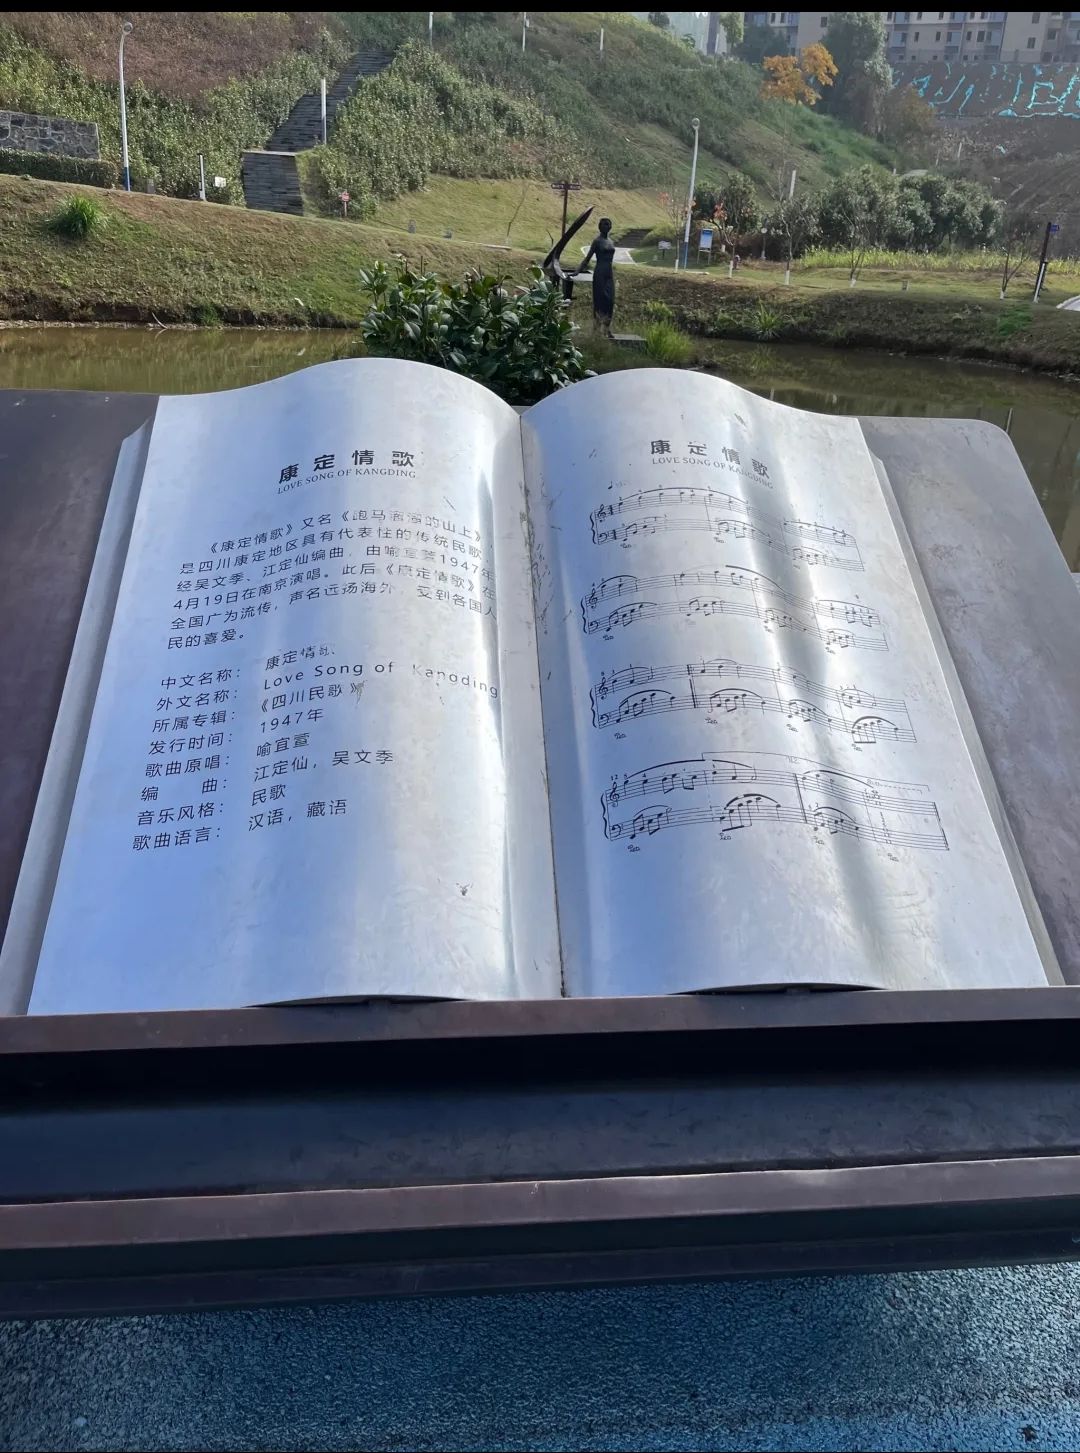 康定情歌
LOVE SONG OF KANGDING
《康定情歌》又名《跑马溜溜的山上》,
是四川康定地区具有代表性的传统民歌,
经吴文季、江定仙编曲,由喻宜萱1947年
4月19日在南京演唱。此后《康定情歌》在
全国广为流传,声名远扬海外,受到各国人
民的喜爱。
中文名称: 康定情歌
外文名称: Love Song of Kangding
所属专辑: 《四川民歌》
发行时间: 1947年
歌曲原唱: 喻宜萱
编 曲: 江定仙,吴文季
音乐风格: 民歌
歌曲语言: 汉语,藏语
康定情歌
LOVE SONG OF KANGDING